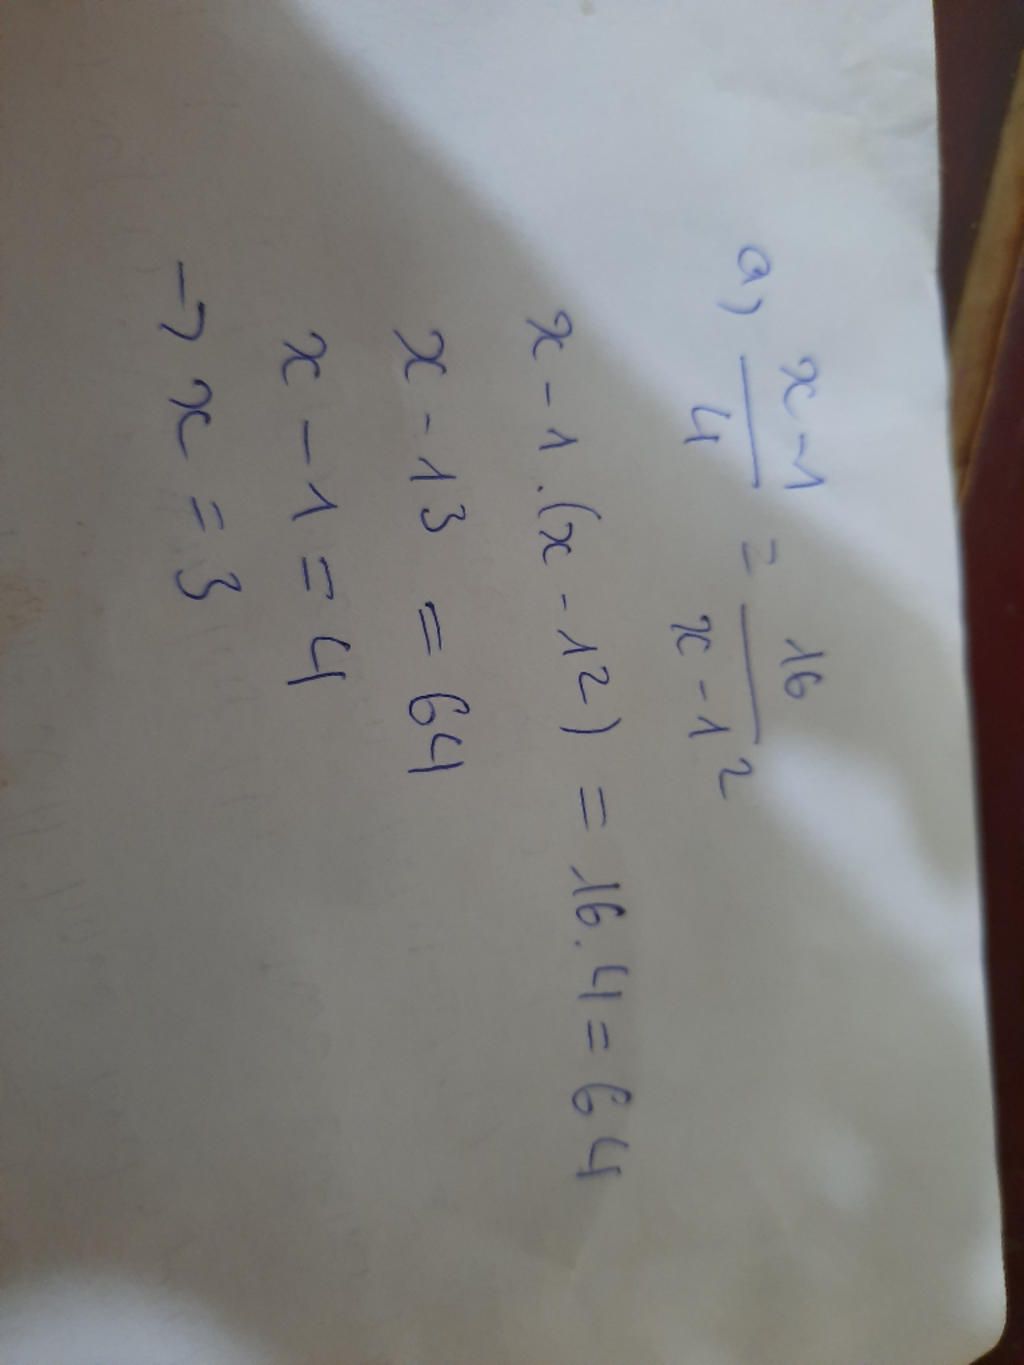 a, x-1/4 = 16/x-1²
x-1.(x-1²) = 16.4 = 64
x-1³ = 64
x-1 = 4
→ x = 3